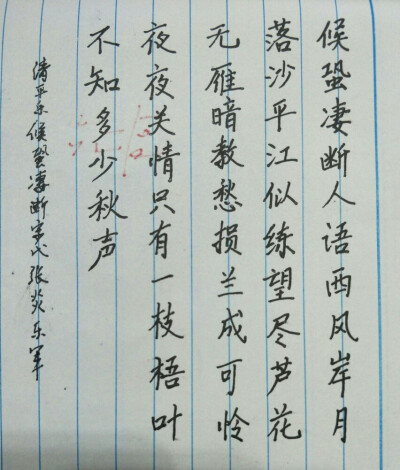 候蛩凄断人语西风岸月
落沙平江似练望尽芦花
无雁暗教愁损兰成可怜
夜夜关情只有一枝梧叶
不知多少秋声
清平乐候蛩凄断宋代张炎乐军